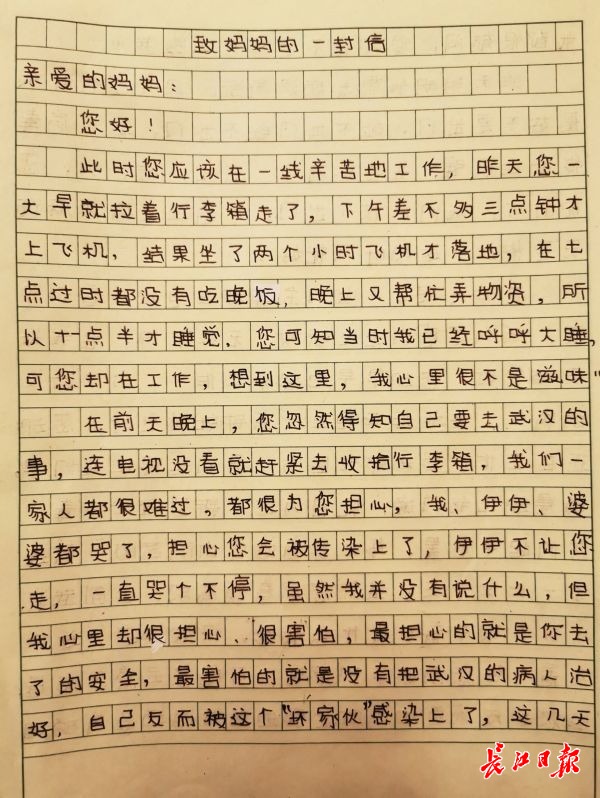 致妈妈的一封信
亲爱的妈妈：
您好！
此时您应该在一线辛苦地工作，昨天您一
大早就拉着行李箱走了，下午差不多三点钟才
上飞机，结果坐了两个小时飞机才落地，在七
点过时都没有吃晚饭，晚上又帮忙弄物资，所
以十一点半才睡觉，您可知当时我已经呼呼大睡，
可您却在工作，想到这里，我心里很不是滋味
在前天晚上，您忽然得知自己要去武汉的
事，连电视没看就赶紧去收拾行李箱，我们一
家人都很难过，都很为您担心，我、伊伊、婆
婆都哭了，担心您会被传染上了，伊伊不让您
走，一直哭个不停，虽然我并没有说什么，但
我心里却很担心、很害怕，最担心的就是你去
了的安全，最害怕的就是没有把武汉的病人治
好，自己反而被这个“坏家伙”感染上了，这几天
长江日报